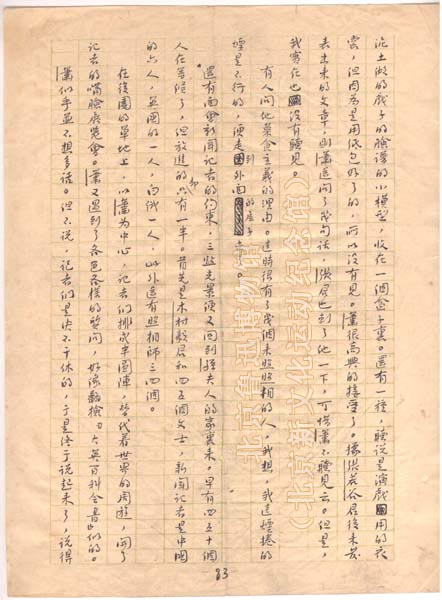 泥土做的戲子的臉譜的小模型，收在一個盒子裏。還有一種，聽說是演戲用的衣
裳，但因為是用紙包好了的，所以沒有見。蕭很高興的接受了。據張若谷君後來發
表出来的文章，則蕭還問了幾句話，張君也刺了他一下，可惜蕭不聽見云。但是，
我實在也沒有聽見。
有人問他菜食主義的理由。這時很有了幾個來照照相的人，我想，我這煙捲的
煙是不行的，便走到外面的屋子去了。
還有面會新聞記者的約束，三點光景便又回到孫夫人的家裏来。早有四五十個
人在等候了，但放進的卻只有一半。首先是木村毅君和四五個文士，新聞記者是中國
的六人，英國的一人，白俄一人，此外還有照相師三四個。
在後園的草地上，以蕭為中心，記者們排成半圓陣，替代着世界的周游，開了
記者的嘴臉展覽會。蕭又遇到了各色各樣的質問，好像翻檢大英百科全書似的。
蕭似乎並不想多話。但不說，記者們是決不干休的，于是終于說起来了，說得
83
北京鲁迅博物馆
（北京新文化运动纪念馆）